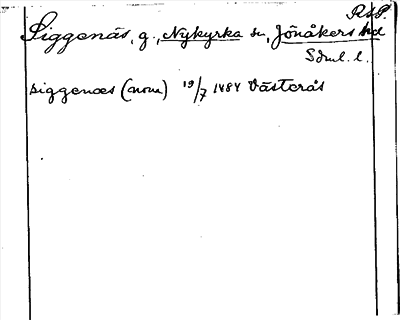 RAP.
Siggenäs, g., Nykyrka sn, Jönåkers hd
Sdml. l.
siggenæs (nom) 19/7 1484 Västerås